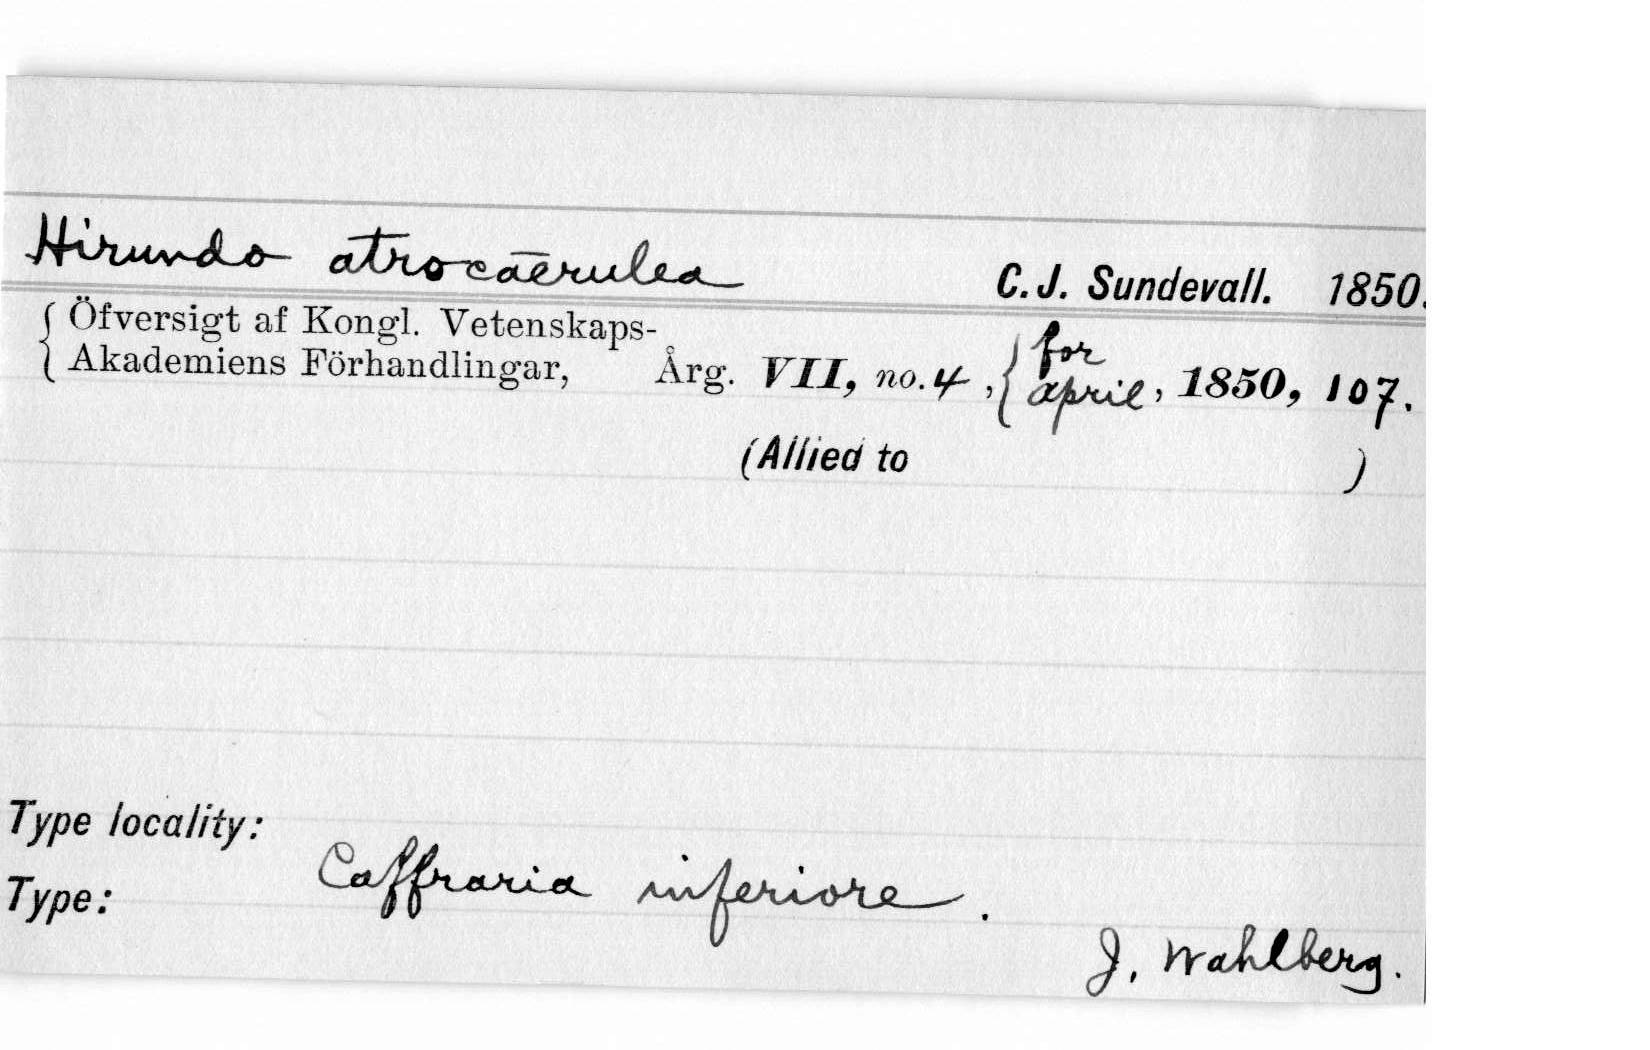 Hirundo atrocāerulea C. J. Sundevall. 1850.
{ Öfversigt af Kongl. Vetenskaps-
Akademiens Förhandlingar, Årg. VII, no. 4, { for april, 1850, 107.
(Allied to )
Type locality:
Caffraria inferiore.
Type:
J. Wahlberg.